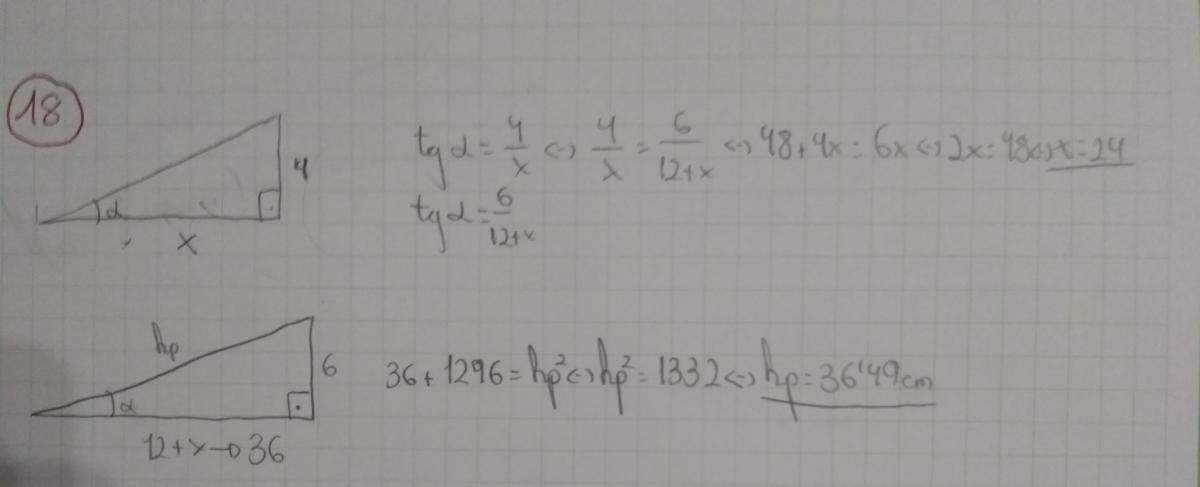 18
4
α
x
tg α = 4/x <-> 4/x = 6/12+x <-> 48+4x = 6x <-> 2x = 48 <-> x = 24
tg α = 6/12+x
hp
6
α
12+x → 36
36 + 1296 = hp² <-> hp² = 1332 <-> hp = 36'49 cm